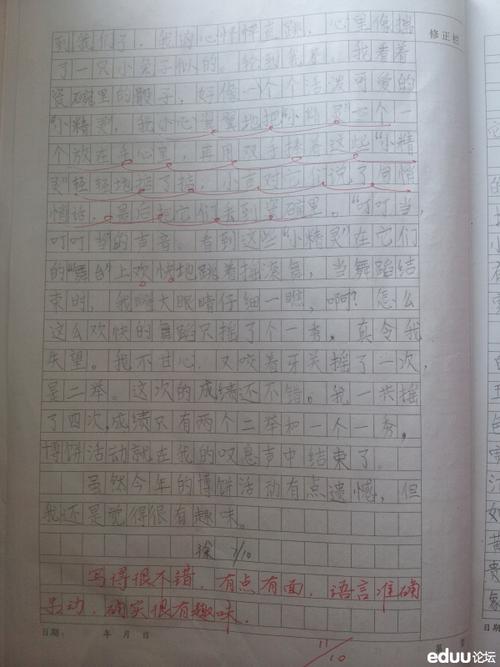 到我们了，我的心怦怦直跳，心里像揣
了一只小兔子似的。轮到我了，我看着
瓷碗里的骰子，好像一个个活泼可爱的
“小精灵”，我小心翼翼地把“小精灵”一个一
个放在手心里，再用双手捧着这些“小精
灵”轻轻地摇了摇，小声对它们说了句悄
悄话，最后把它们丢到瓷碗里。“叮叮当，
叮叮当”的声音。看到这些“小精灵”在它们
的“舞台”上欢快地跳着摇滚舞，当舞蹈结
束时，我睁大眼睛仔细一瞧，啊？怎么
这么欢快的舞蹈只摇了个一秀，真令我
失望。我不甘心，又咬着牙关摇了一次，
是二举。这次的成绩还不错。我一共摇
了四次，成绩只有两个二举和一个一秀，
博饼活动就在我的叹息声中结束了。
虽然今年的博饼活动有点遗憾，但
我还是觉得很有趣味。
写得很不错，有点有面，语言准确
生动，确实很有趣味。
11/10
修正栏
日期： 年 月 日
日期：
eduu论坛